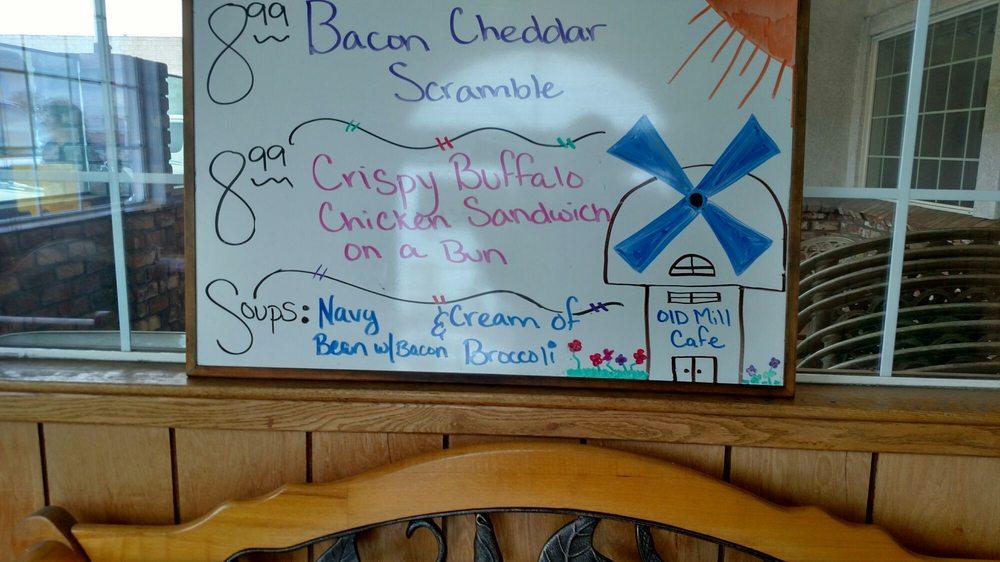 8.99 Bacon Cheddar
Scramble
8.99 Crispy Buffalo
Chicken Sandwich
on a Bun
Soups: Navy & Cream of
Bean w/Bacon Broccoli
OlD Mill
Cafe